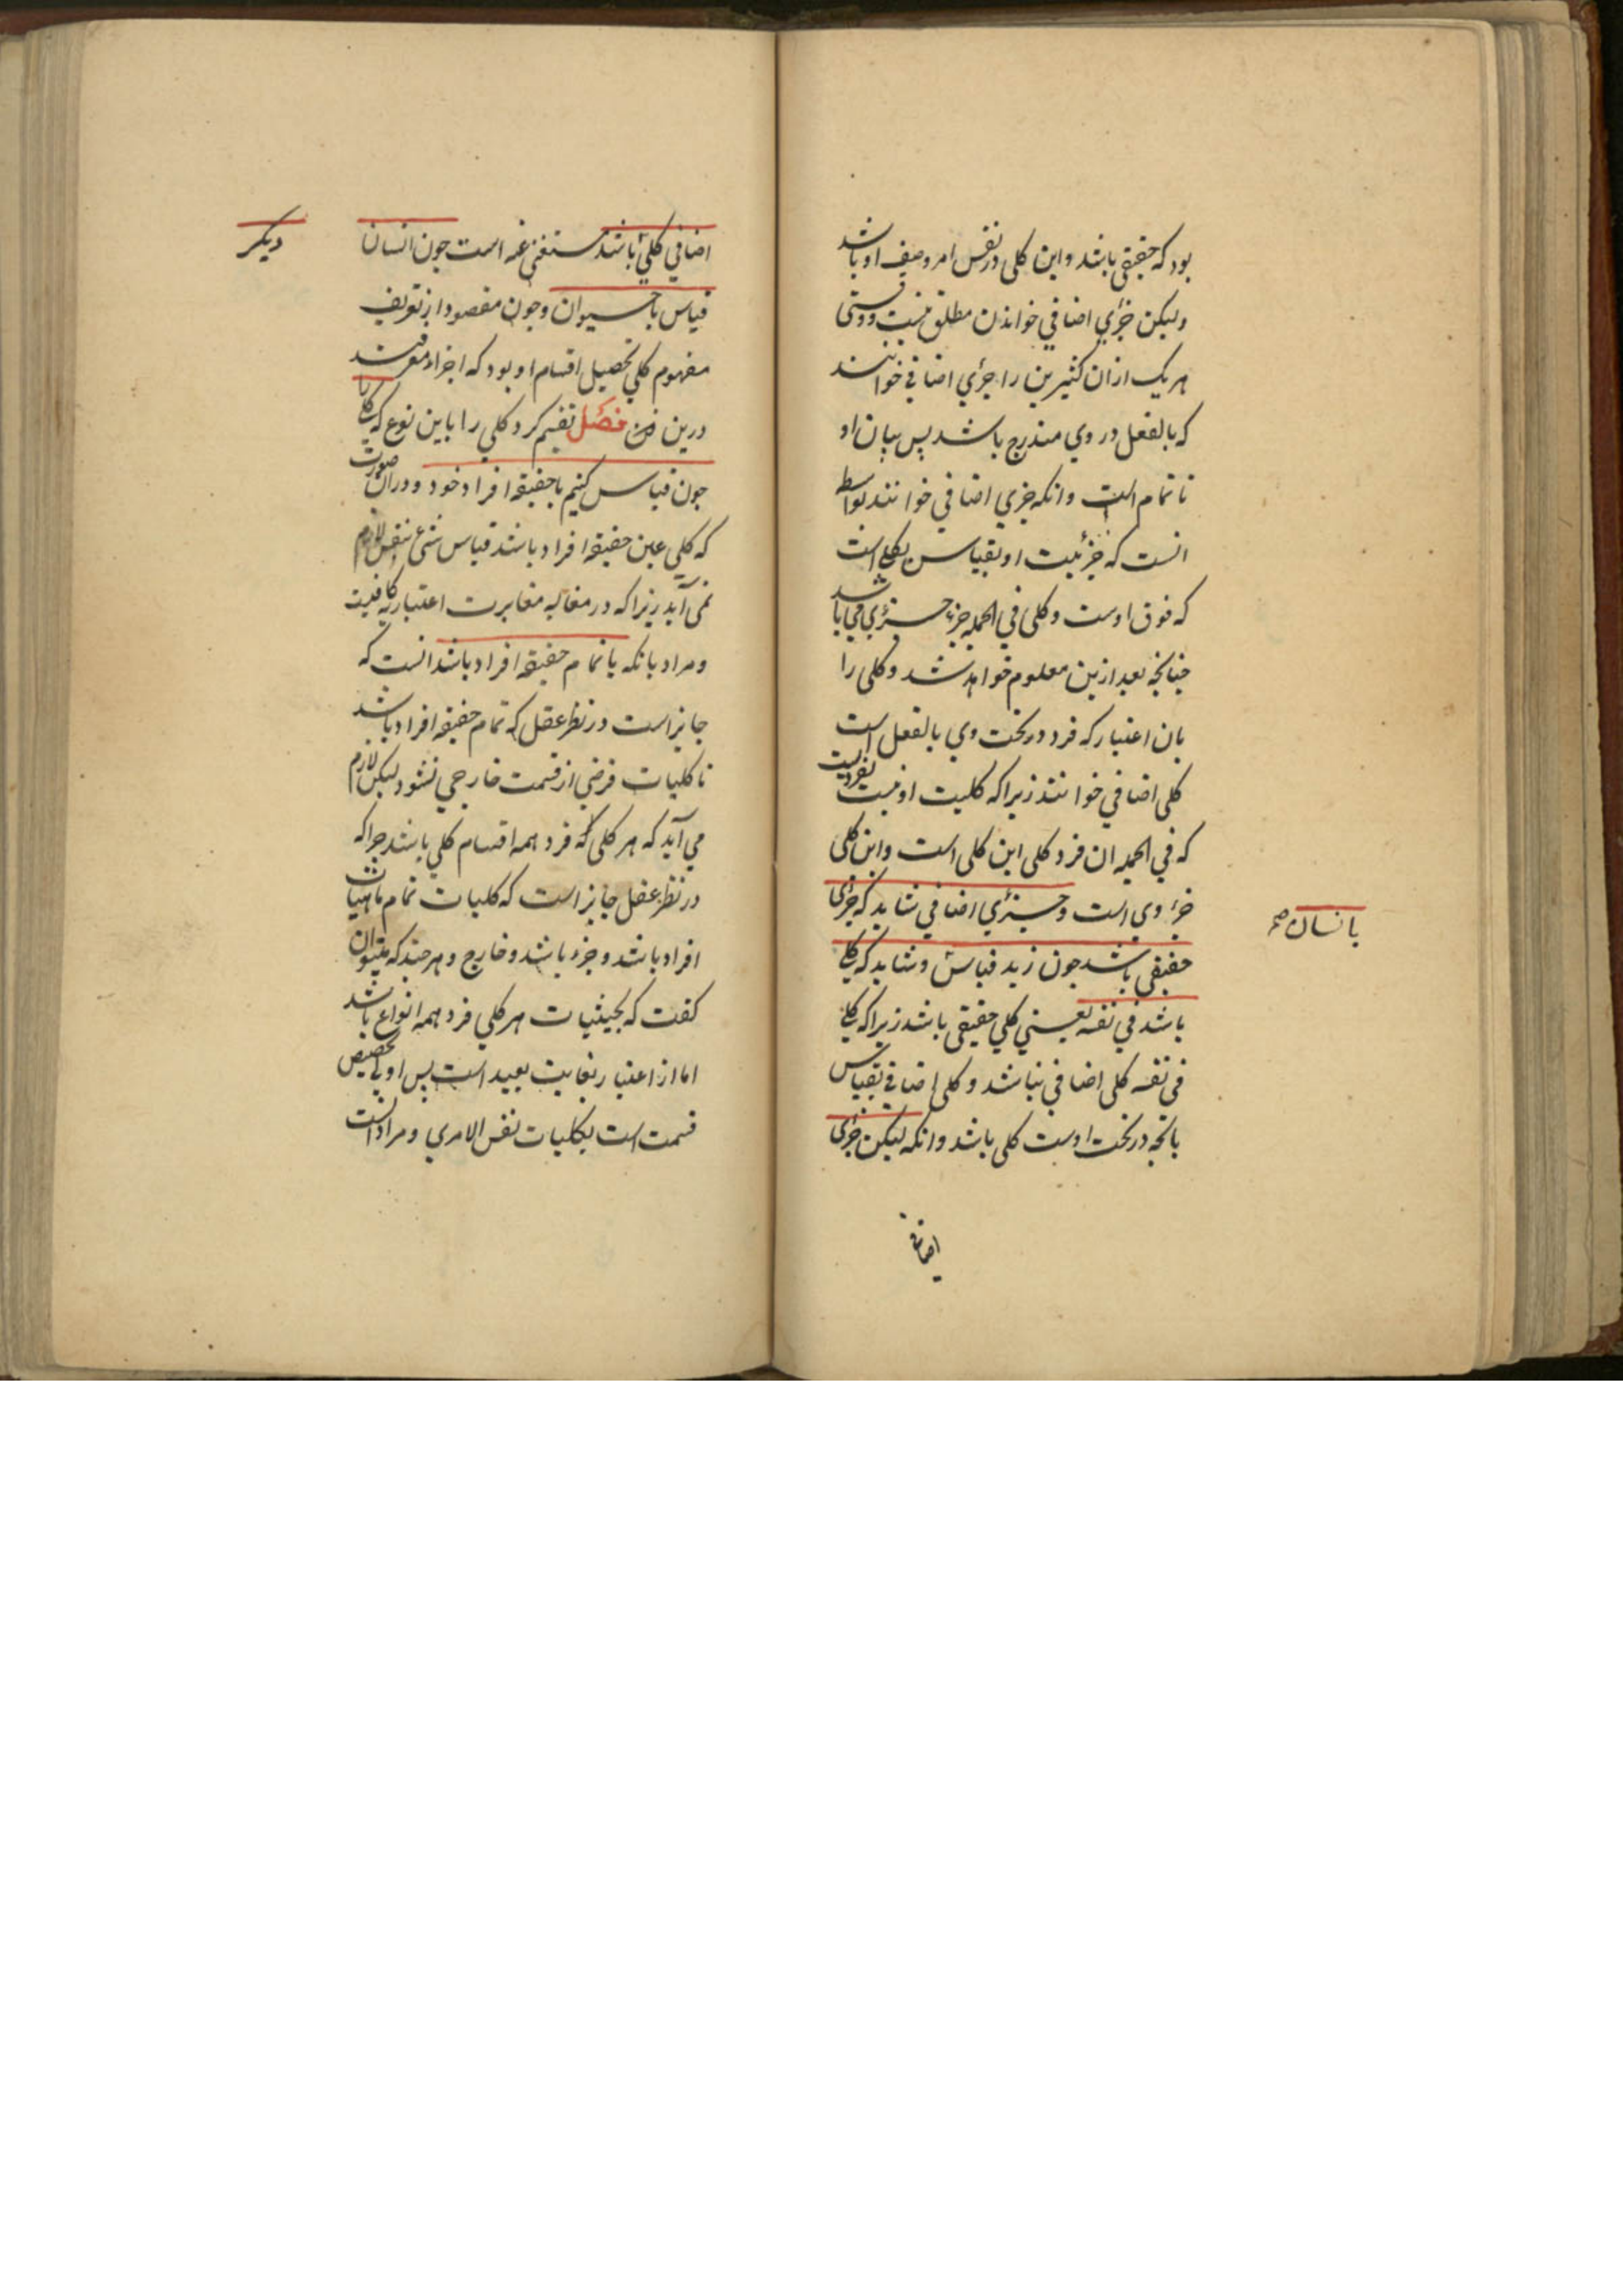 بود که حقیقی باشد و این کلی در نفس امر وصف او باشد
ولیکن جزئي اضافي خواندن مطلق نیست وقتی
هر یک ازان کثیرین را جزئي اضافي خوانند
که بالفعل در وي مندرج باشد پس بیان او
ناتمام است وانکه جزي اضافي خوانند بواسطه
انست که جزئیت او بقیاس بکلي است
که فوق اوست وکلی في الجمله جزء جزئي مي باشد
چنانچه بعد ازین معلوم خواهد شد وکلی را
بان اعتبار که فرد در تحت وي بالفعل است
کلی اضافي خوانند زیرا که کلیت او نسبت بفردیست
که في الجمله ان فرد کلی این کلی است واین کلی
جزء وی است وجزئي اضافي شاید که جزئی
حقیقي باشد چون زید قیاس وشاید که کلي
بانسان صح
باشد في نفسه یعني کلي حقیقی باشد زیرا که کلي
في نفسه کلی اضافي نباشد وکلی اضافي بقیاس
بانچه در تحت اوست کلی باشد وانکه لیکن جزئی
اضافي
اضافي کلي باشند مستغنی عنه است چون انسان با
دیگر
قیاس با حیوان وچون مقصود از تعریف
مفهوم کلي تحصیل اقسام او بود که اجزاء معرفند
درین فن فصل تقسیم کرد کلي را باین نوع که کلي را
چون قیاس کنیم با حقیقة افراد خود ودران صورت
که کلي عین حقیقة افراد باشد قیاس شئ بنفس لازم
نمی آید زیرا که در مقایسه مغایرت اعتباریه کافیست
ومراد بانکه یا تمام حقیقة افراد باشد انست که
جایز است در نظر عقل که تمام حقیقة افراد باشد
تا کلیات فرضي از قسمت خارجي نشود لیکن لازم
مي آید که هر کلی که فرد همه اقسام کلي باشد چرا که
در نظر عقل جایز است که کلیات تمام ماهیات
افراد باشد وجزء باشد وخارج وهرچند که میتوان
کفت که بحیثیات هر کلي فرد همه انواع باشد
اما از اعتبار بغایت بعید است پس اولي تخصیص
قسمت است بکلیات نفس الامري ومراد از است